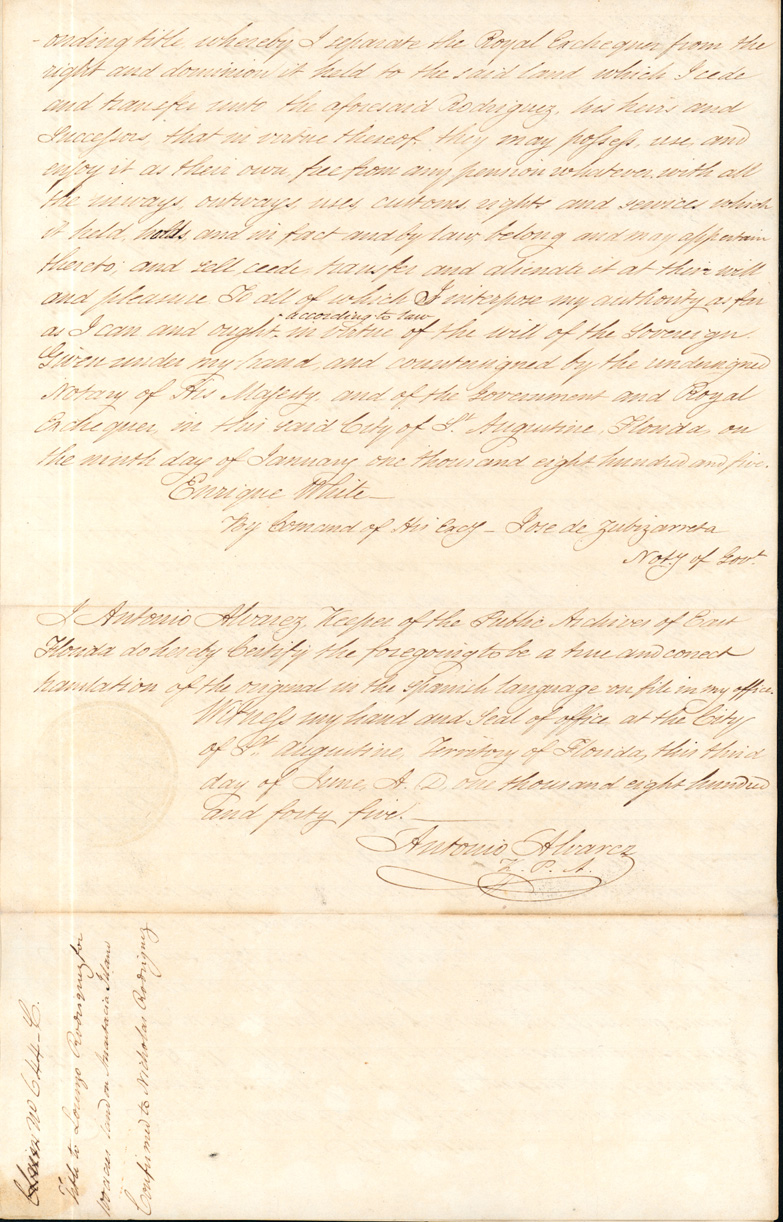 -onding title, whereby I separate the Royal Exchequer from the
right and dominion it held to the said land which I cede
and transfer unto the aforesaid Rodriguez, his heirs and
Successors, that in virtue thereof they may possess, use, and
enjoy it as their own, free from any pension whatever, with all
the inways, outways, uses, customs, rights and services which
it held, holds, and in fact and by law, belong and may appertain
thereto; and sell, cede, transfer and alienate it at their will
and pleasure To all of which I interpose my authority as far
as I can and ought according to law in virtue of the will of the Sovereign.
Given under my hand, and countersigned by the undersigned
Notary of His Majesty, and of the Government and Royal
Exchequer, in this said City of St. Augustine, Florida, on
the ninth day of January one thousand eight hundred and five.
Enrique White
By Comand of His Excy - Jose de Zubizarreta
Noty of Govt.
I Antonio Alvarez, Keeper of the Public Archives of East
Florida do hereby Certify the foregoing to be a true and correct
translation of the original in the Spanish language on file in my office.
Witness my hand and Seal of office, at the City
of St. Augustine, Territory of Florida, this third
day of June, A. D. one thousand eight hundred
and forty five.
Antonio Alvarez
K. P. A.
No 644-C.
Title to Lorenzo Rodriguez for
100 acres land on Anastacia Island
Confirmed to Nicholas Rodriguez